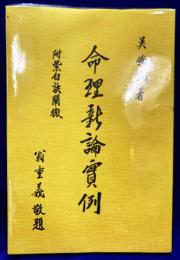 吳 著
命理新論實例
附紫白訣闡微
翁重義敬題